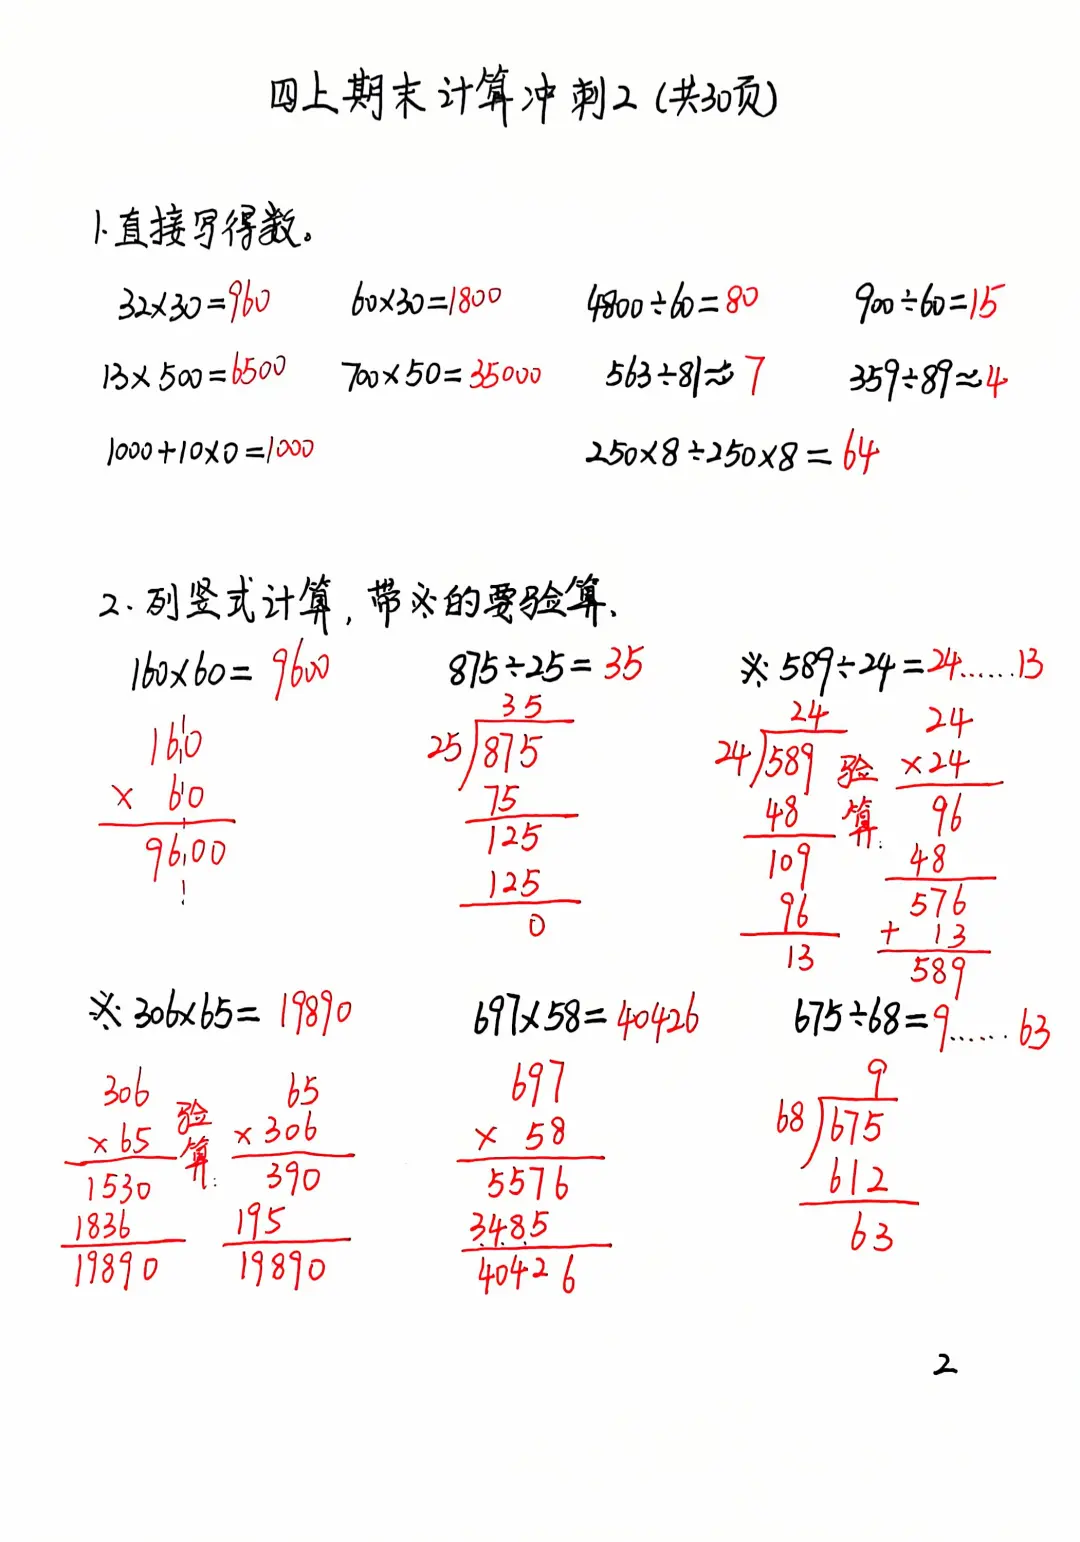 四上期末计算冲刺2(共30页)
1.直接写得数。
32×30=960 60×30=1800 4800÷60=80 900÷60=15
13×500=6500 700×50=35000 563÷81≈7 359÷89≈4
1000+10×0=1000 250×8÷250×8=64
2.列竖式计算,带※的要验算.
160×60=9600 875÷25=35 ※589÷24=24......13
160
× 60
9600
35
25 875
75
125
125
0
24
24 589
48
109
96
13
验算:
24
×24
96
48
576
+ 13
589
※306×65=19890 697×58=40426 675÷68=9......63
306
×65
1530
1836
19890
验算:
65
×306
390
195
19890
697
× 58
5576
3485
40426
9
68 675
612
63
2